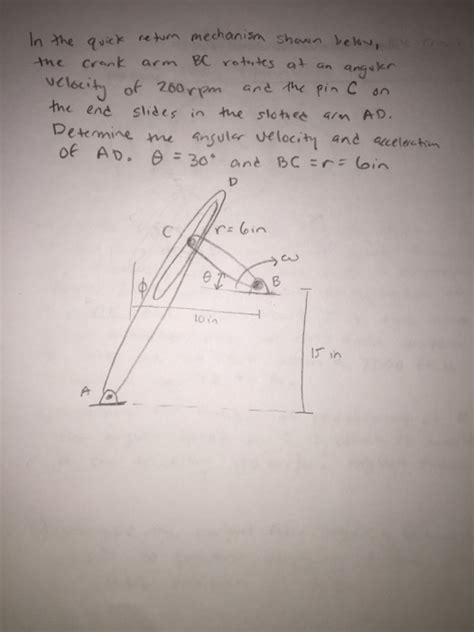 In the quick return mechanism shown below,
the crank arm BC rotates at an angular
velocity of 200rpm and the pin C on
the end slides in the slotted arm AD.
Determine the angular velocity and acceleration
of AD. θ = 30° and BC = r = 6in
D
C
r = 6in
ω
θ
B
ϕ
10in
15 in
A